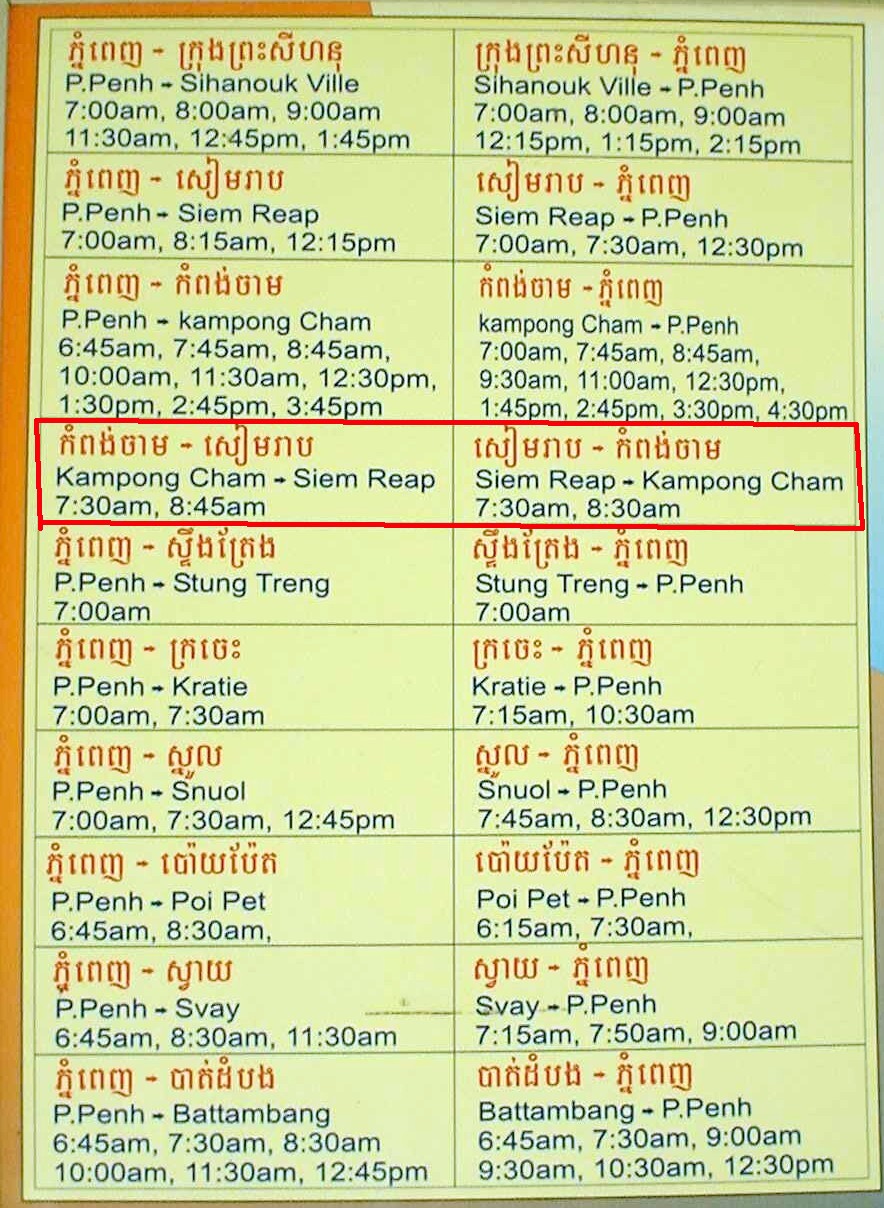 ភ្នំពេញ - ក្រុងព្រះសីហនុ
P.Penh - Sihanouk Ville
7:00am, 8:00am, 9:00am
11:30am, 12:45pm, 1:45pm
ក្រុងព្រះសីហនុ - ភ្នំពេញ
Sihanouk Ville - P.Penh
7:00am, 8:00am, 9:00am
12:15pm, 1:15pm, 2:15pm
ភ្នំពេញ - សៀមរាប
P.Penh - Siem Reap
7:00am, 8:15am, 12:15pm
សៀមរាប - ភ្នំពេញ
Siem Reap - P.Penh
7:00am, 7:30am, 12:30pm
ភ្នំពេញ - កំពង់ចាម
P.Penh - kampong Cham
6:45am, 7:45am, 8:45am,
10:00am, 11:30am, 12:30pm,
1:30pm, 2:45pm, 3:45pm
កំពង់ចាម -ភ្នំពេញ
kampong Cham - P.Penh
7:00am, 7:45am, 8:45am,
9:30am, 11:00am, 12:30pm,
1:45pm, 2:45pm, 3:30pm, 4:30pm
កំពង់ចាម - សៀមរាប
Kampong Cham - Siem Reap
7:30am, 8:45am
សៀមរាប - កំពង់ចាម
Siem Reap - Kampong Cham
7:30am, 8:30am
ភ្នំពេញ - ស្ទឹងត្រែង
P.Penh - Stung Treng
7:00am
ស្ទឹងត្រែង - ភ្នំពេញ
Stung Treng - P.Penh
7:00am
ភ្នំពេញ - ក្រចេះ
P.Penh - Kratie
7:00am, 7:30am
ក្រចេះ - ភ្នំពេញ
Kratie - P.Penh
7:15am, 10:30am
ភ្នំពេញ - ស្នួល
P.Penh - Snuol
7:00am, 7:30am, 12:45pm
ស្នួល - ភ្នំពេញ
Snuol - P.Penh
7:45am, 8:30am, 12:30pm
ភ្នំពេញ - ប៉ោយប៉ែត
P.Penh - Poi Pet
6:45am, 8:30am,
ប៉ោយប៉ែត - ភ្នំពេញ
Poi Pet - P.Penh
6:15am, 7:30am,
ភ្នំពេញ - ស្វាយ
P.Penh - Svay
6:45am, 8:30am, 11:30am
ស្វាយ - ភ្នំពេញ
Svay - P.Penh
7:15am, 7:50am, 9:00am
ភ្នំពេញ - បាត់ដំបង
P.Penh - Battambang
6:45am, 7:30am, 8:30am
10:00am, 11:30am, 12:45pm
បាត់ដំបង - ភ្នំពេញ
Battambang - P.Penh
6:45am, 7:30am, 9:00am
9:30am, 10:30am, 12:30pm